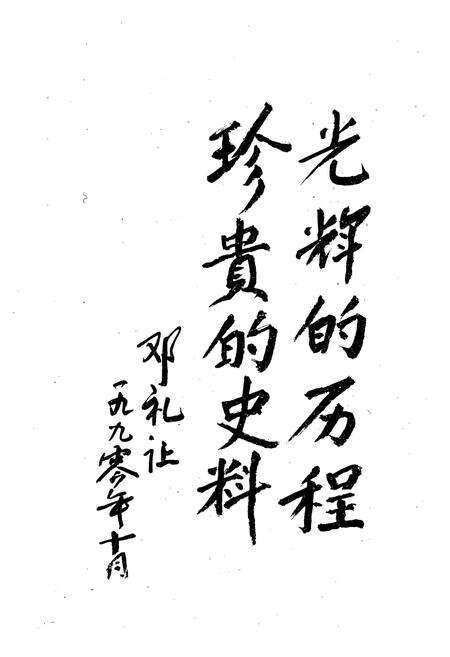 光辉的历程
珍貴的史料
邓礼让
一九九零年十月